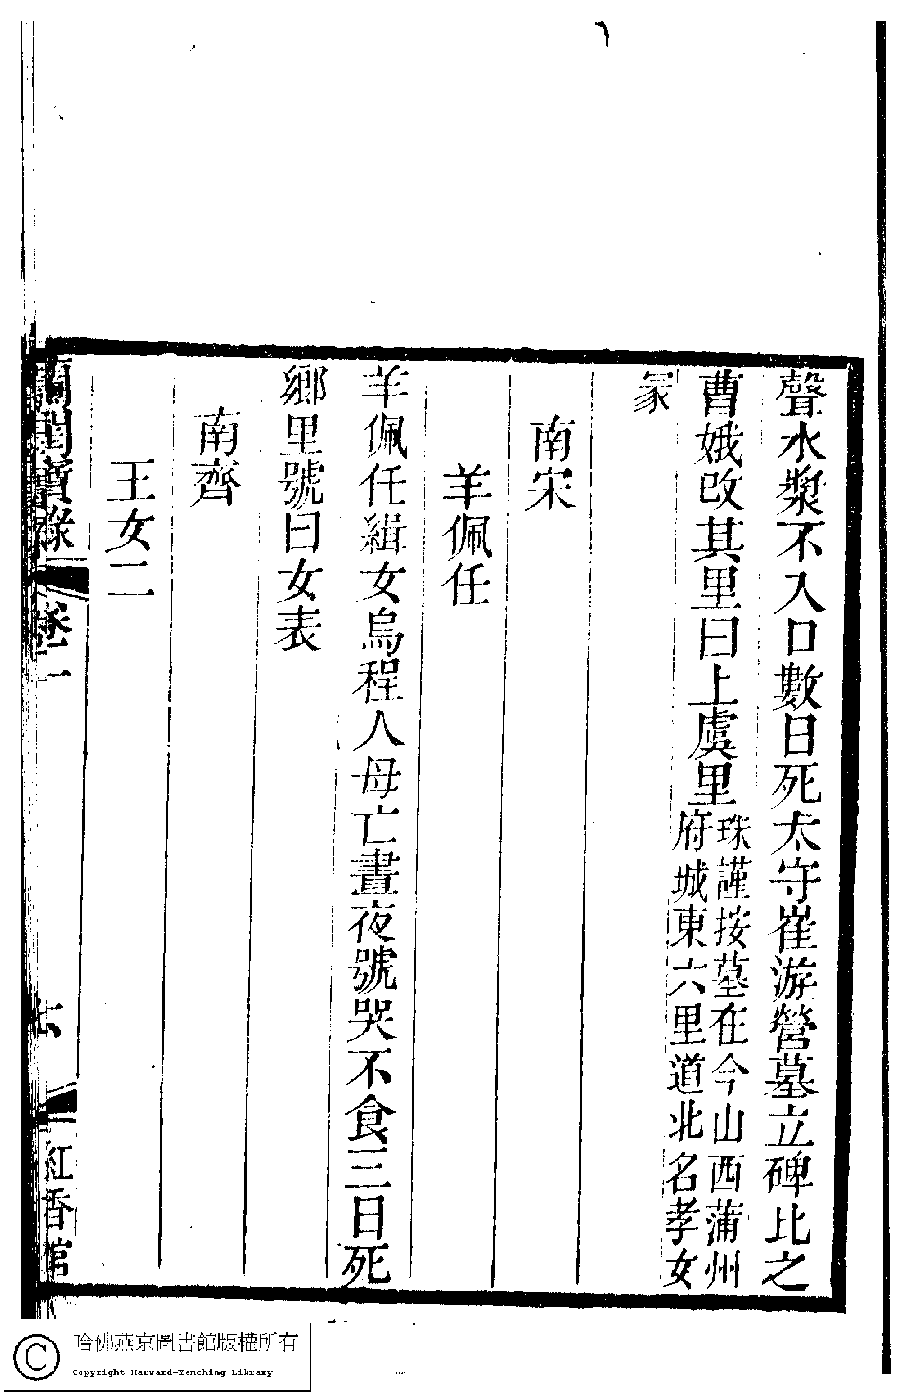 聲水漿不入口數日死太守崔游營墓立碑比之
曹娥改其里曰上虞里珠謹按墓在今山西蒲州府城東六里道北名孝女
冡
南宋
羊佩任
羊佩任緝女烏程人母亡晝夜號哭不食三日死
鄉里號曰女表
南齊
王女二
閨寶錄
卷一
七
紅香館
哈佛燕京圖書館版權所有
Copyright Harvard-Yenching Library